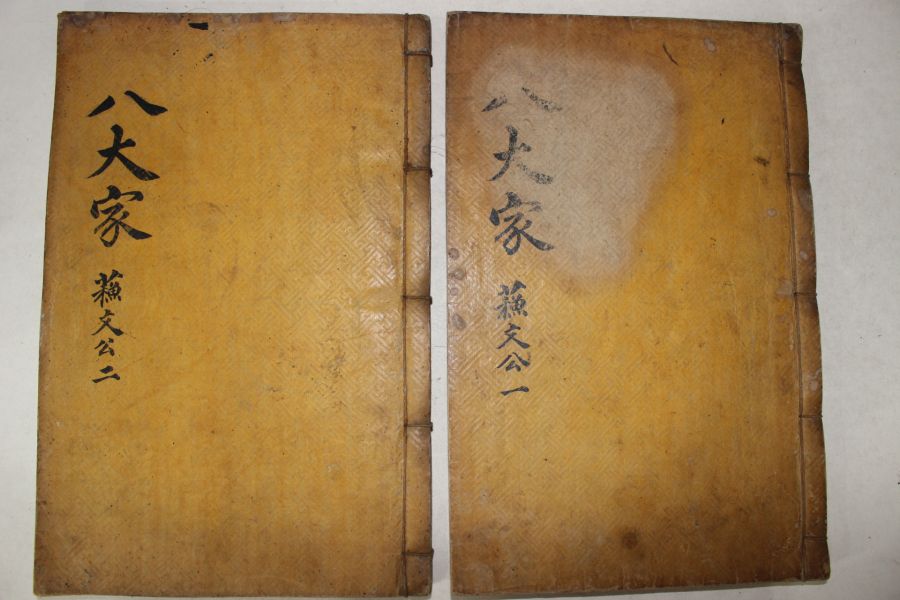 八大家
蘓文公一
八大家
蘓文公二